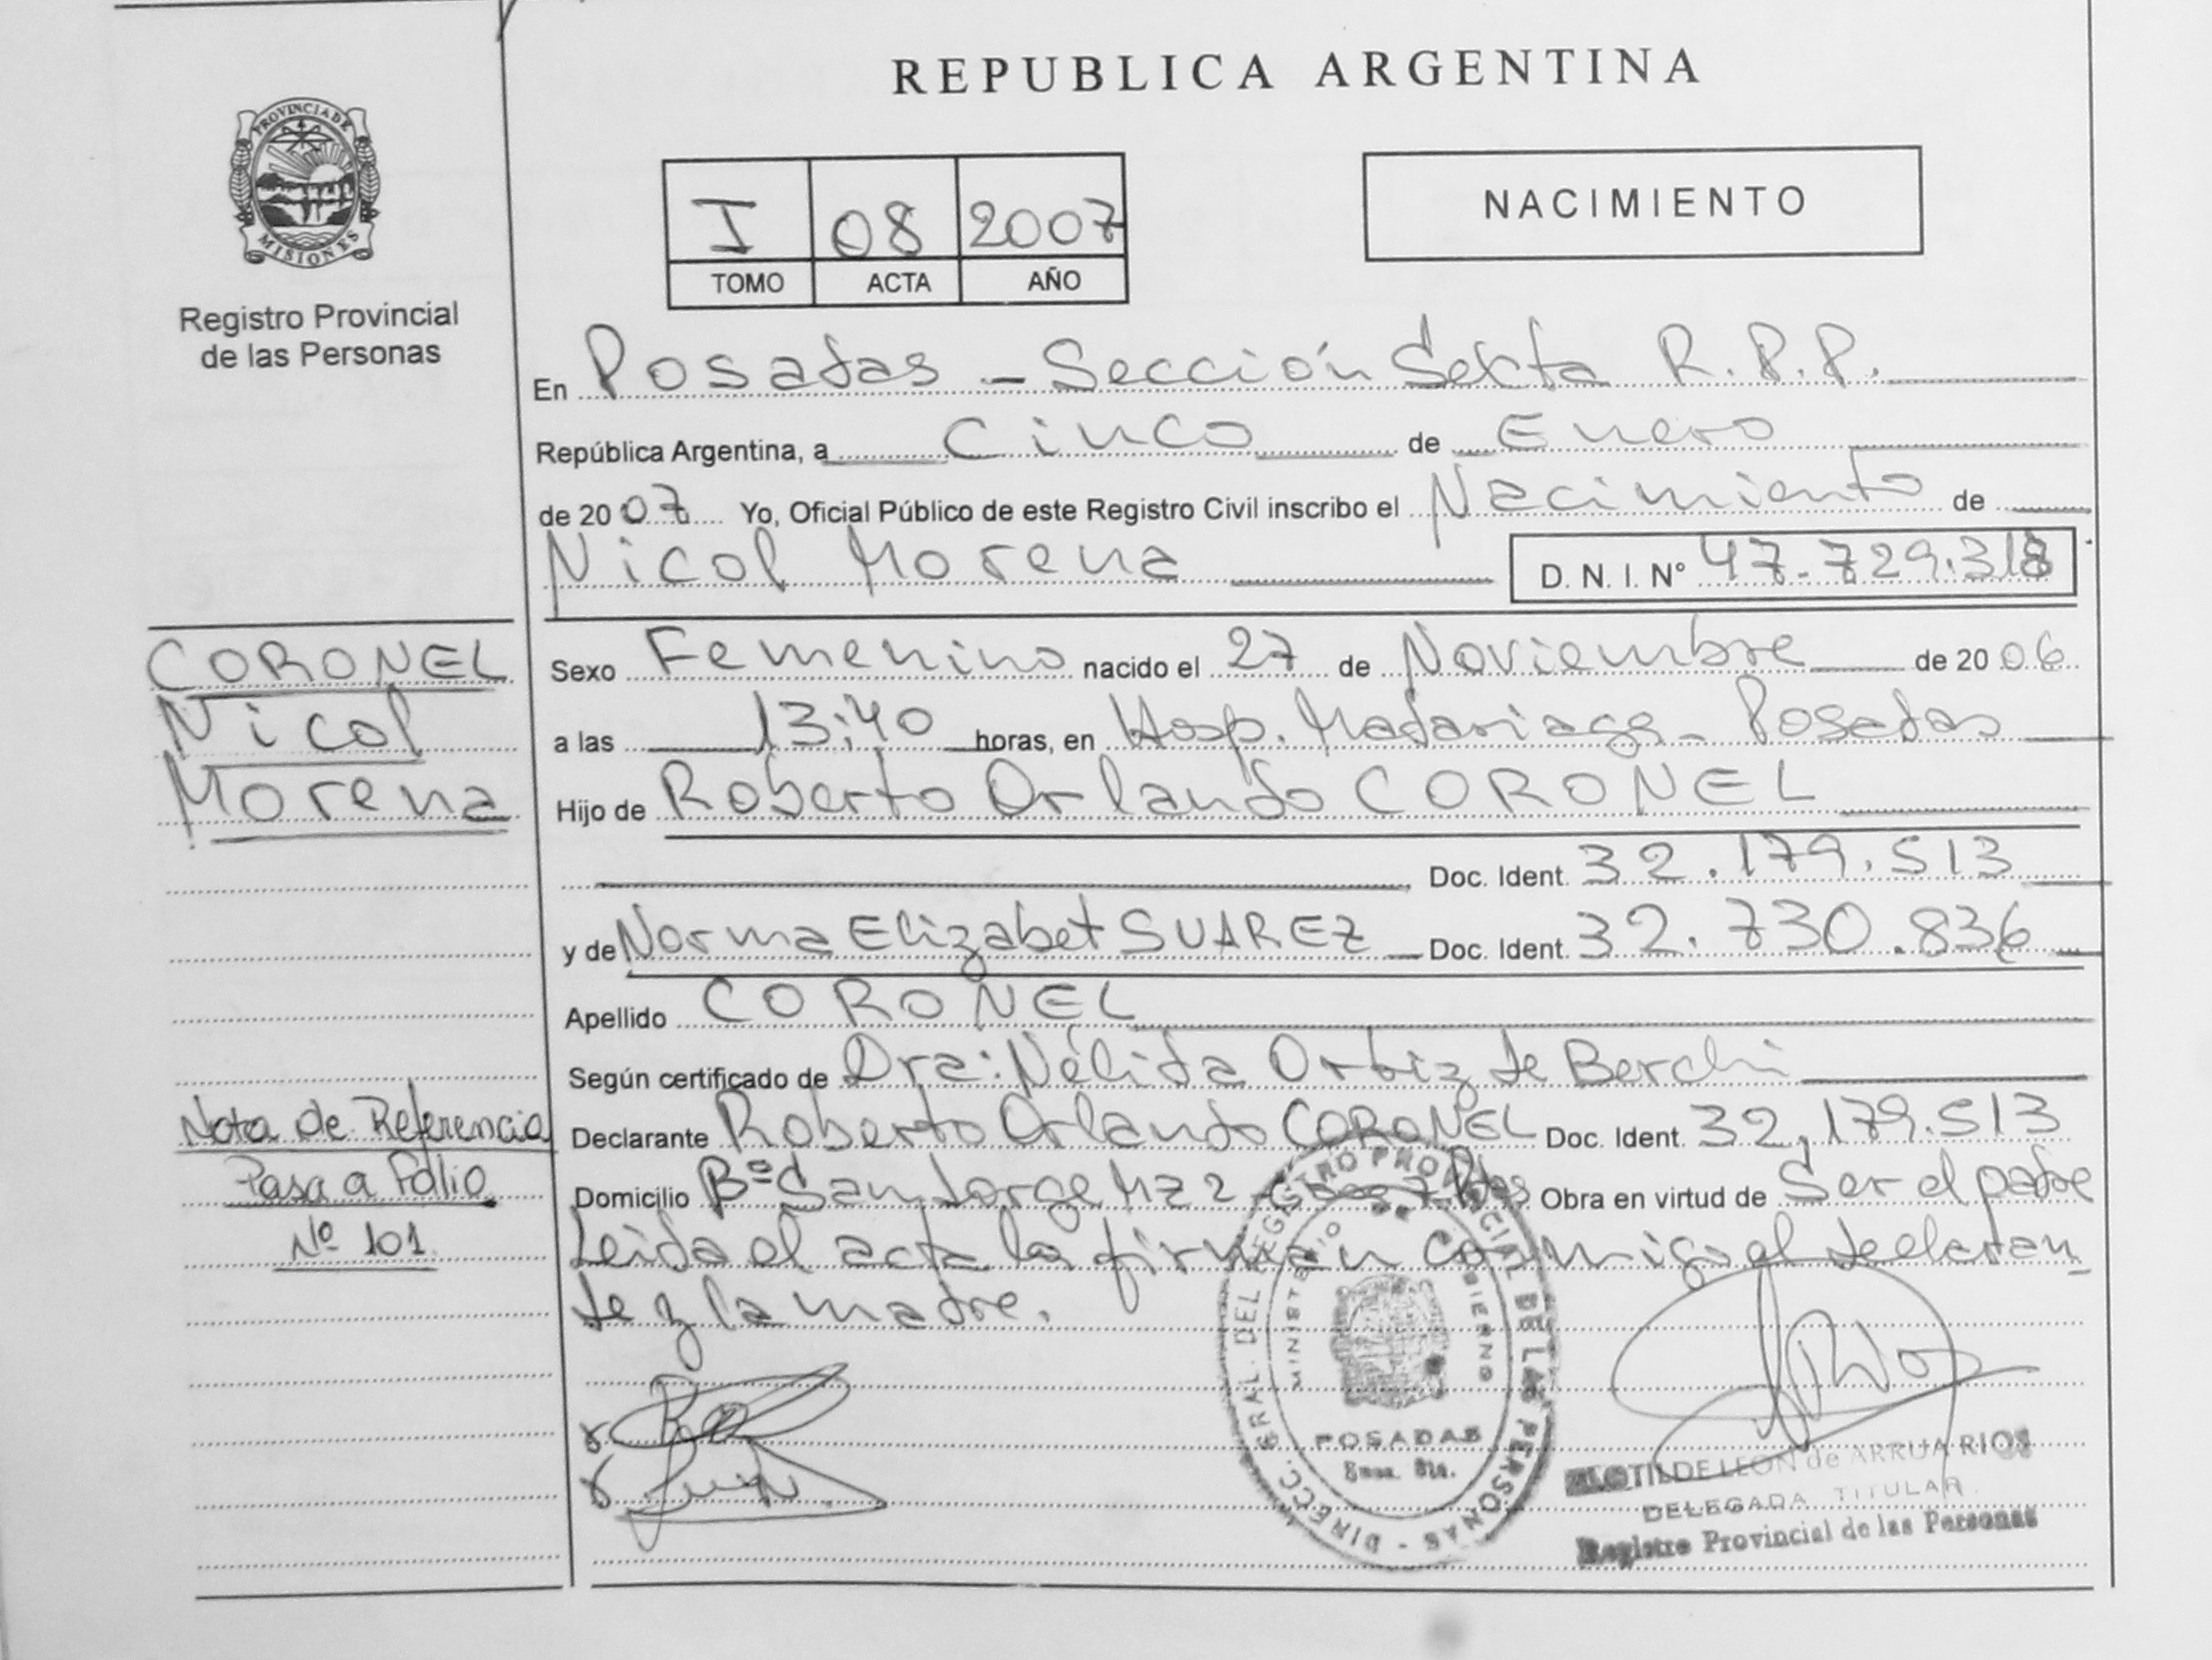 REPUBLICA ARGENTINA
PROVINCIA DE
MISIONES
Registro Provincial
de las Personas
I 08 2007
TOMO ACTA AÑO
NACIMIENTO
En Posadas - Sección Sexta R.P.P.
República Argentina, a Cinco de Enero
de 2007 Yo, Oficial Público de este Registro Civil inscribo el Nacimiento de
Nicol Morena D. N. I. N° 47.729.318
CORONEL
Nicol
Morena
Sexo Femenino nacido el 27 de Noviembre de 2006
a las 13:40 horas, en Hosp. Madariaga - Posadas
Hijo de Roberto Orlando CORONEL
Doc. Ident. 32.179.513
y de Norma Elizabet SUAREZ Doc. Ident. 32.730.836
Apellido CORONEL
Según certificado de Dra: Nélida Ortiz de Berchi
Nota de Referencia
Pasa a Folio
Nº 101
Declarante Roberto Orlando CORONEL Doc. Ident. 32.179.513
Domicilio Bº San Jorge Mz 2 Obra en virtud de Ser el padre
Leida el acta la firman conmigo el declaran
te y la madre.
DIRECC. GRAL. DEL REGISTRO PROVINCIAL DE LAS PERSONAS
MINISTERIO DE GOBIERNO
POSADAS
CLOTILDE LEON de ARRUA RIOS
DELEGADA TITULAR
Registro Provincial de las Personas